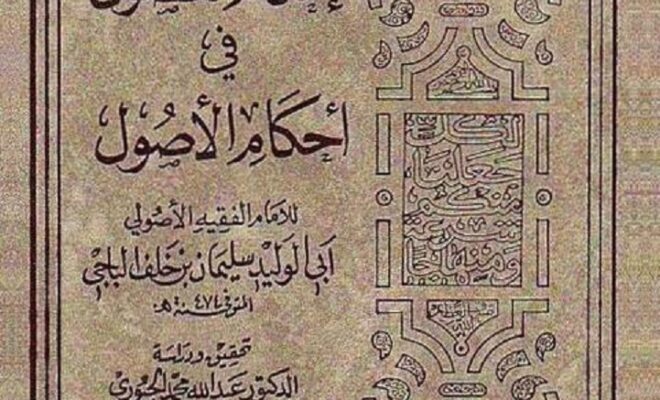 إحكام الفصول
في
أحكام الأصول
للإمام الفقيه الأصولي
أبي الوليد سليمان بن خلف الباجي
المتوفى سنة ٤٧٤ هـ
تحقيق ودراسة
الدكتور عبد الله محمد الجبوري
لكل
جعلنا
منكم
شرعة
ومنهاجا
صدق الله العظيم